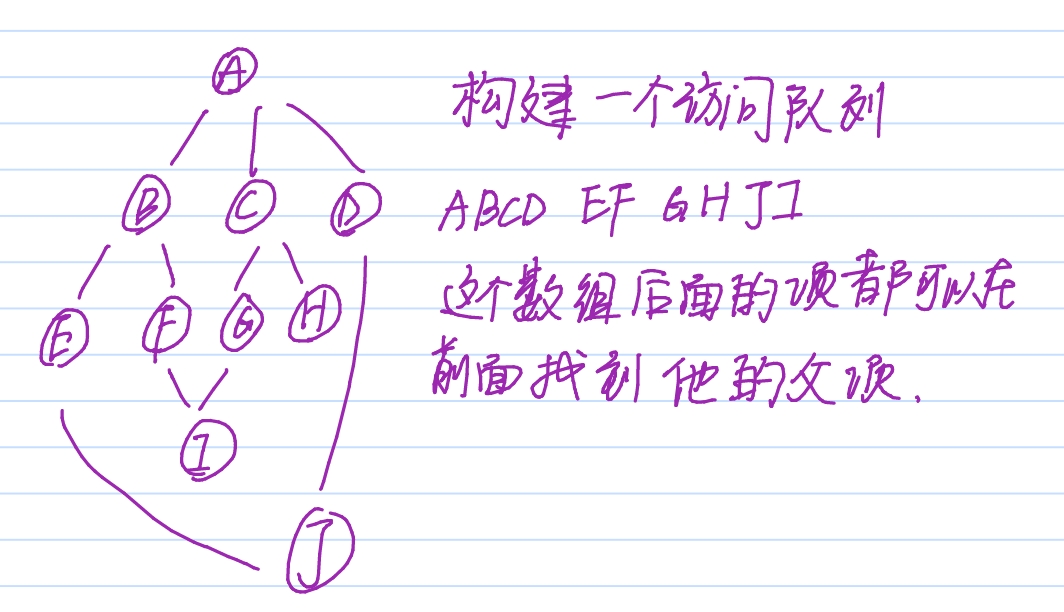 A
构建一个访问队列
B C D
ABCD EF GHJI
这个数组后面的项都可以在
E F G H
前面找到他的父项.
I
J